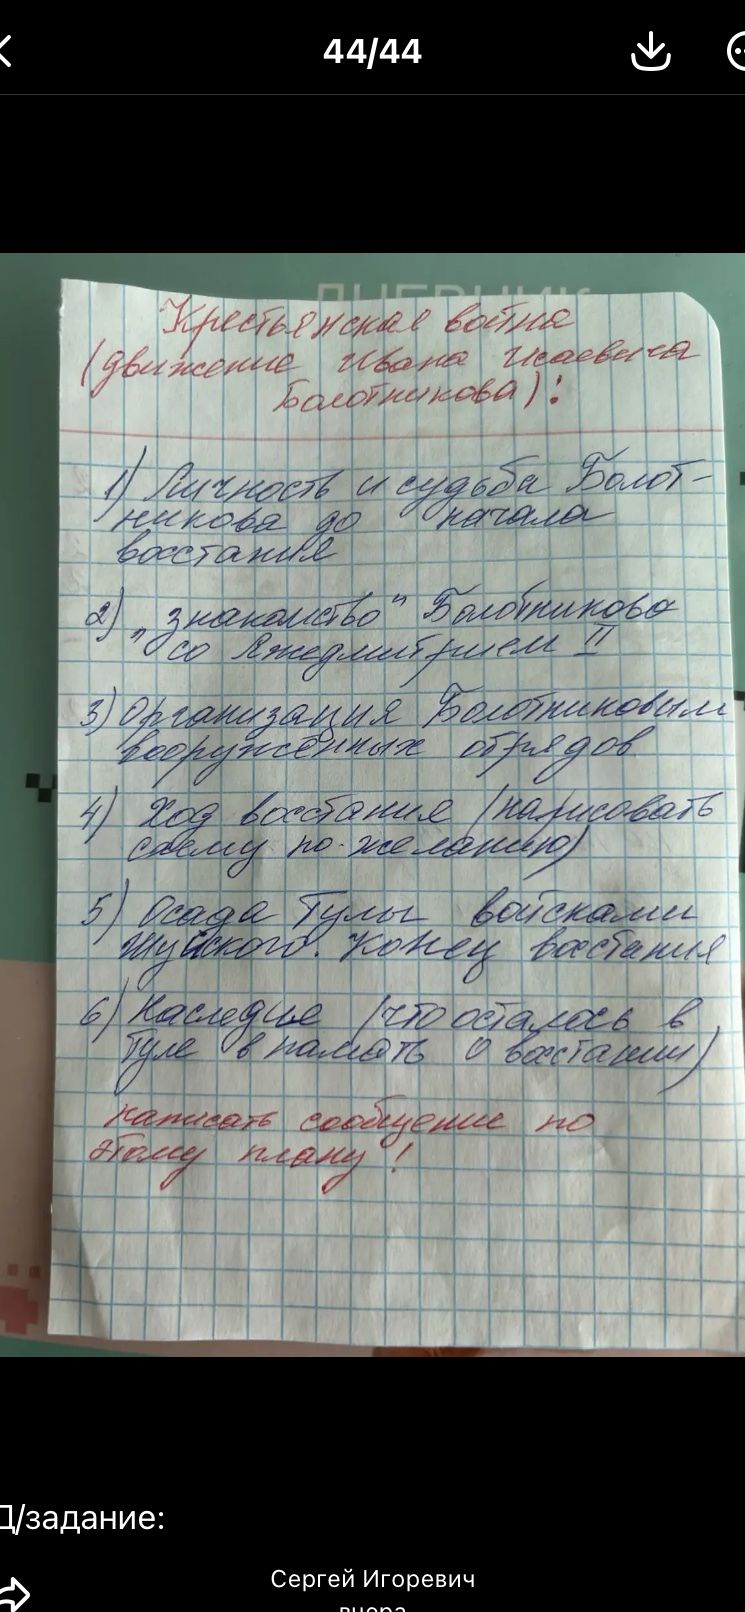 44/44
ДНЕВНИК
Крестьянская война
(движение Ивана Исаевича
Болотникова):
1) Личность и судьба Болот-
никова до начала
восстания
2) „знакомство“ Болотникова
со Лжедмитрием II
3) Организация Болотниковым
вооружённых отрядов
4) Ход восстания (нарисовать
схему по желанию)
5) Осада Тулы войсками
Шуйского. Конец восстания
6) Наследие (что осталось в
Туле в память о восстании)
написать сообщение по
этому плану!
Д/задание:
Сергей Игоревич
вчера